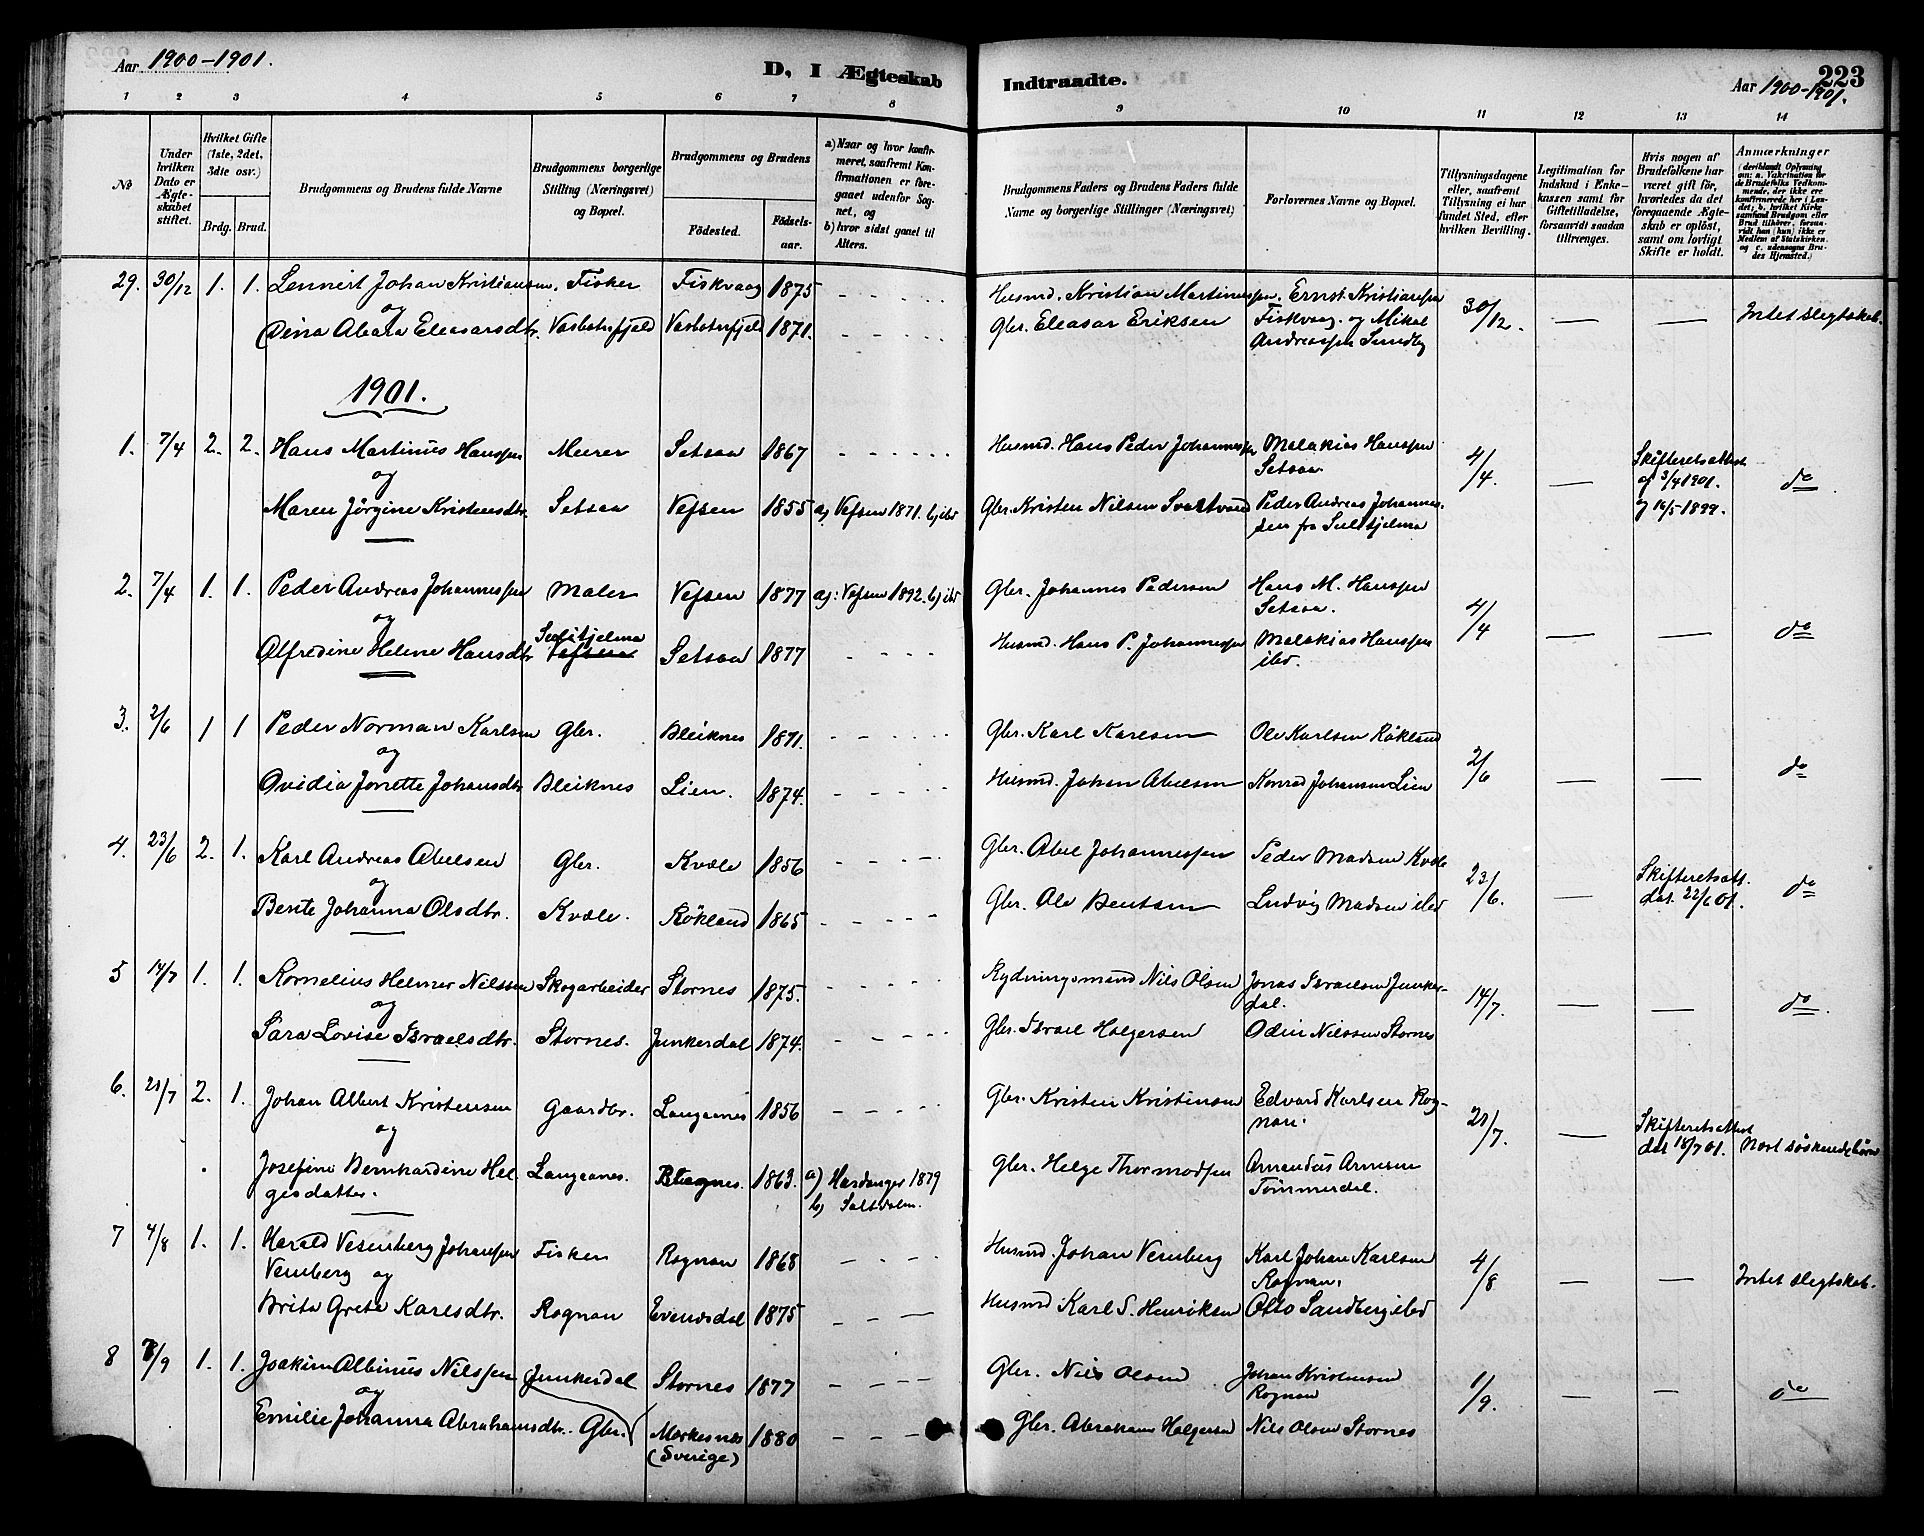 Aar 1900-1901.
D, I Ægteskab Indtraadte.
223
Aar 1900-1901.
1 2 3 4 5 6 7 8 9 10 11 12 13 14
No
Under hvilken Dato er Ægteskabet stiftet.
Hvilket Gifte (1ste, 2det, 3die osv.)
Brdg. Brud.
Brudgommens og Brudens fulde Navne
Brudgommens borgerlige Stilling (Næringsvei) og Bopæl.
Brudgommens og Brudens
Fødested.
Fødselsaar.
a) Naar og hvor konfirmeret, saafremt Konfirmationen er foregaaet udenfor Sognet, og
b) hvor sidst gaaet til Alters.
Brudgommens Faders og Brudens Faders fulde Navne og borgerlige Stillinger (Næringsvei)
Forlovernes Navne og Bopæl.
Tillysningsdagene eller, saafremt Tillysning ei har fundet Sted, efter hvilken Bevilling.
Legitimation for Indskud i Enkekassen samt for Giftetilladelse, forsaavidt saadan tiltrænges.
Hvis nogen af Brudefolkene har været gift før, hvorledes da det foregaaende Ægteskab er opløst, samt om lovligt Skifte er holdt.
Anmærkninger
29. 30/12 1. 1. Lennert Johan Kristiansen, Fisker Fiskvaag 1875 Husmd. Kristian Martinussen. Ernst Kristiansen
og
Dina Abara Eleasarsdtr. Vasbotnfjeld Vasbotnfjeld 1871. Gbr. Eleasar Eriksen Fiskvaag. og Mikal Andreassen Sundby 30/12. Intet slegtskab.
1901.
1. 7/4 2. 2. Hans Martinus Hanssen Murer Setsaa 1867 Husmd. Hans Peder Johannessen Malakias Hanssen Setsaa 4/4. Skifteretsattest af 3/4 1901.
og
Maren Jörgine Kristensdtr. Setsaa Vefsen 1855 a) Vefsen 1871. b) ibd Gbr. Kristen Nilsen Svartvand Peder Andreas Johannessen fra Sulitjelma og 16/5 1899. do
2. 7/4 1. 1. Peder Andreas Johannessen Maler Vefsen 1877 a): Vefsen 1892. b) ibd Gbr. Johannes Pedersen Hans M. Hanssen Setsaa. 4/4
og
Alfredine Helene Hansdtr Sulitjelma Vefsen Setsaa 1877 Husmd. Hans P. Johannessen Malakias Hanssen ibd. do
3. 2/6 1 1 Peder Norman Karlsen Gbr. Bleiknes 1871. Gbr. Karl Karlsen Ole Karlsen Rökland 2/6
og
Ovidia Jonette Johansdtr Bleiknes Lien. 1874. Husmd. Johan Abelsen Konrad Johansen Lien do
4. 23/6 2. 1. Karl Andreas Abelsen Gbr. Kvæle 1856 Gbr. Abel Johannessen Peder Madsen Kvæle 23/6. Skifteretsatt. dat. 22/6 01.
og
Bente Johanna Olsdtr. Kvæle. Rökland 1865 Gbr. Ole Bentsen Ludvig Madsen ibd do
5 14/7 1. 1. Kornelius Helmer Nilssen Skogarbeider Stornes 1875. Rydningsmand Nils Olsen Jonas Israelsen Junkerdal. 14/7.
og
Sara Lovise Israelsdtr. Stornes. Junkerdal 1874. Gbr. Israel Holgersen Odin Nilssen Stornes do.
6. 21/7 2. 1. Johan Albert Kristensen Gaardbr. Langaanes 1856 Gbr. Kristen Kristensen Edvard Karlsen Rognan. 21/7. Skifteretsattest dat 18/7 01.
og
Josefine Bernhardine Helgesdatter. Langaanes. 1863. a) Hardanger 1879 b) Saltdalen. Gbr. Helge Thormodsen Amandus Arnesen Tömmerdal.
7 4/8 1. 1. Harald Vesenberg Johanssen Fisker Rognan 1868 Husmd. Johan Venberg Karl Johan Karlsen Rognan. 4/8 Intet slegtskab.
Venberg og
Brita Greta Karlsdtr. Rognan Evensdal 1875 Husmd Karl S. Henriksen Otto Sandberg ibd
8 /9 1. 1. Joakim Albinus Nilssen Junkerdal Stornes 1877 Gbr. Nils Olsen Johan Kristensen Rognan 1/9. do
og
Emilie Johanna Abrahamsdtr. Gbr. Mørkesnes (Sverige) 1880 Gbr. Abraham Holgersen Nils Olsen Stornes